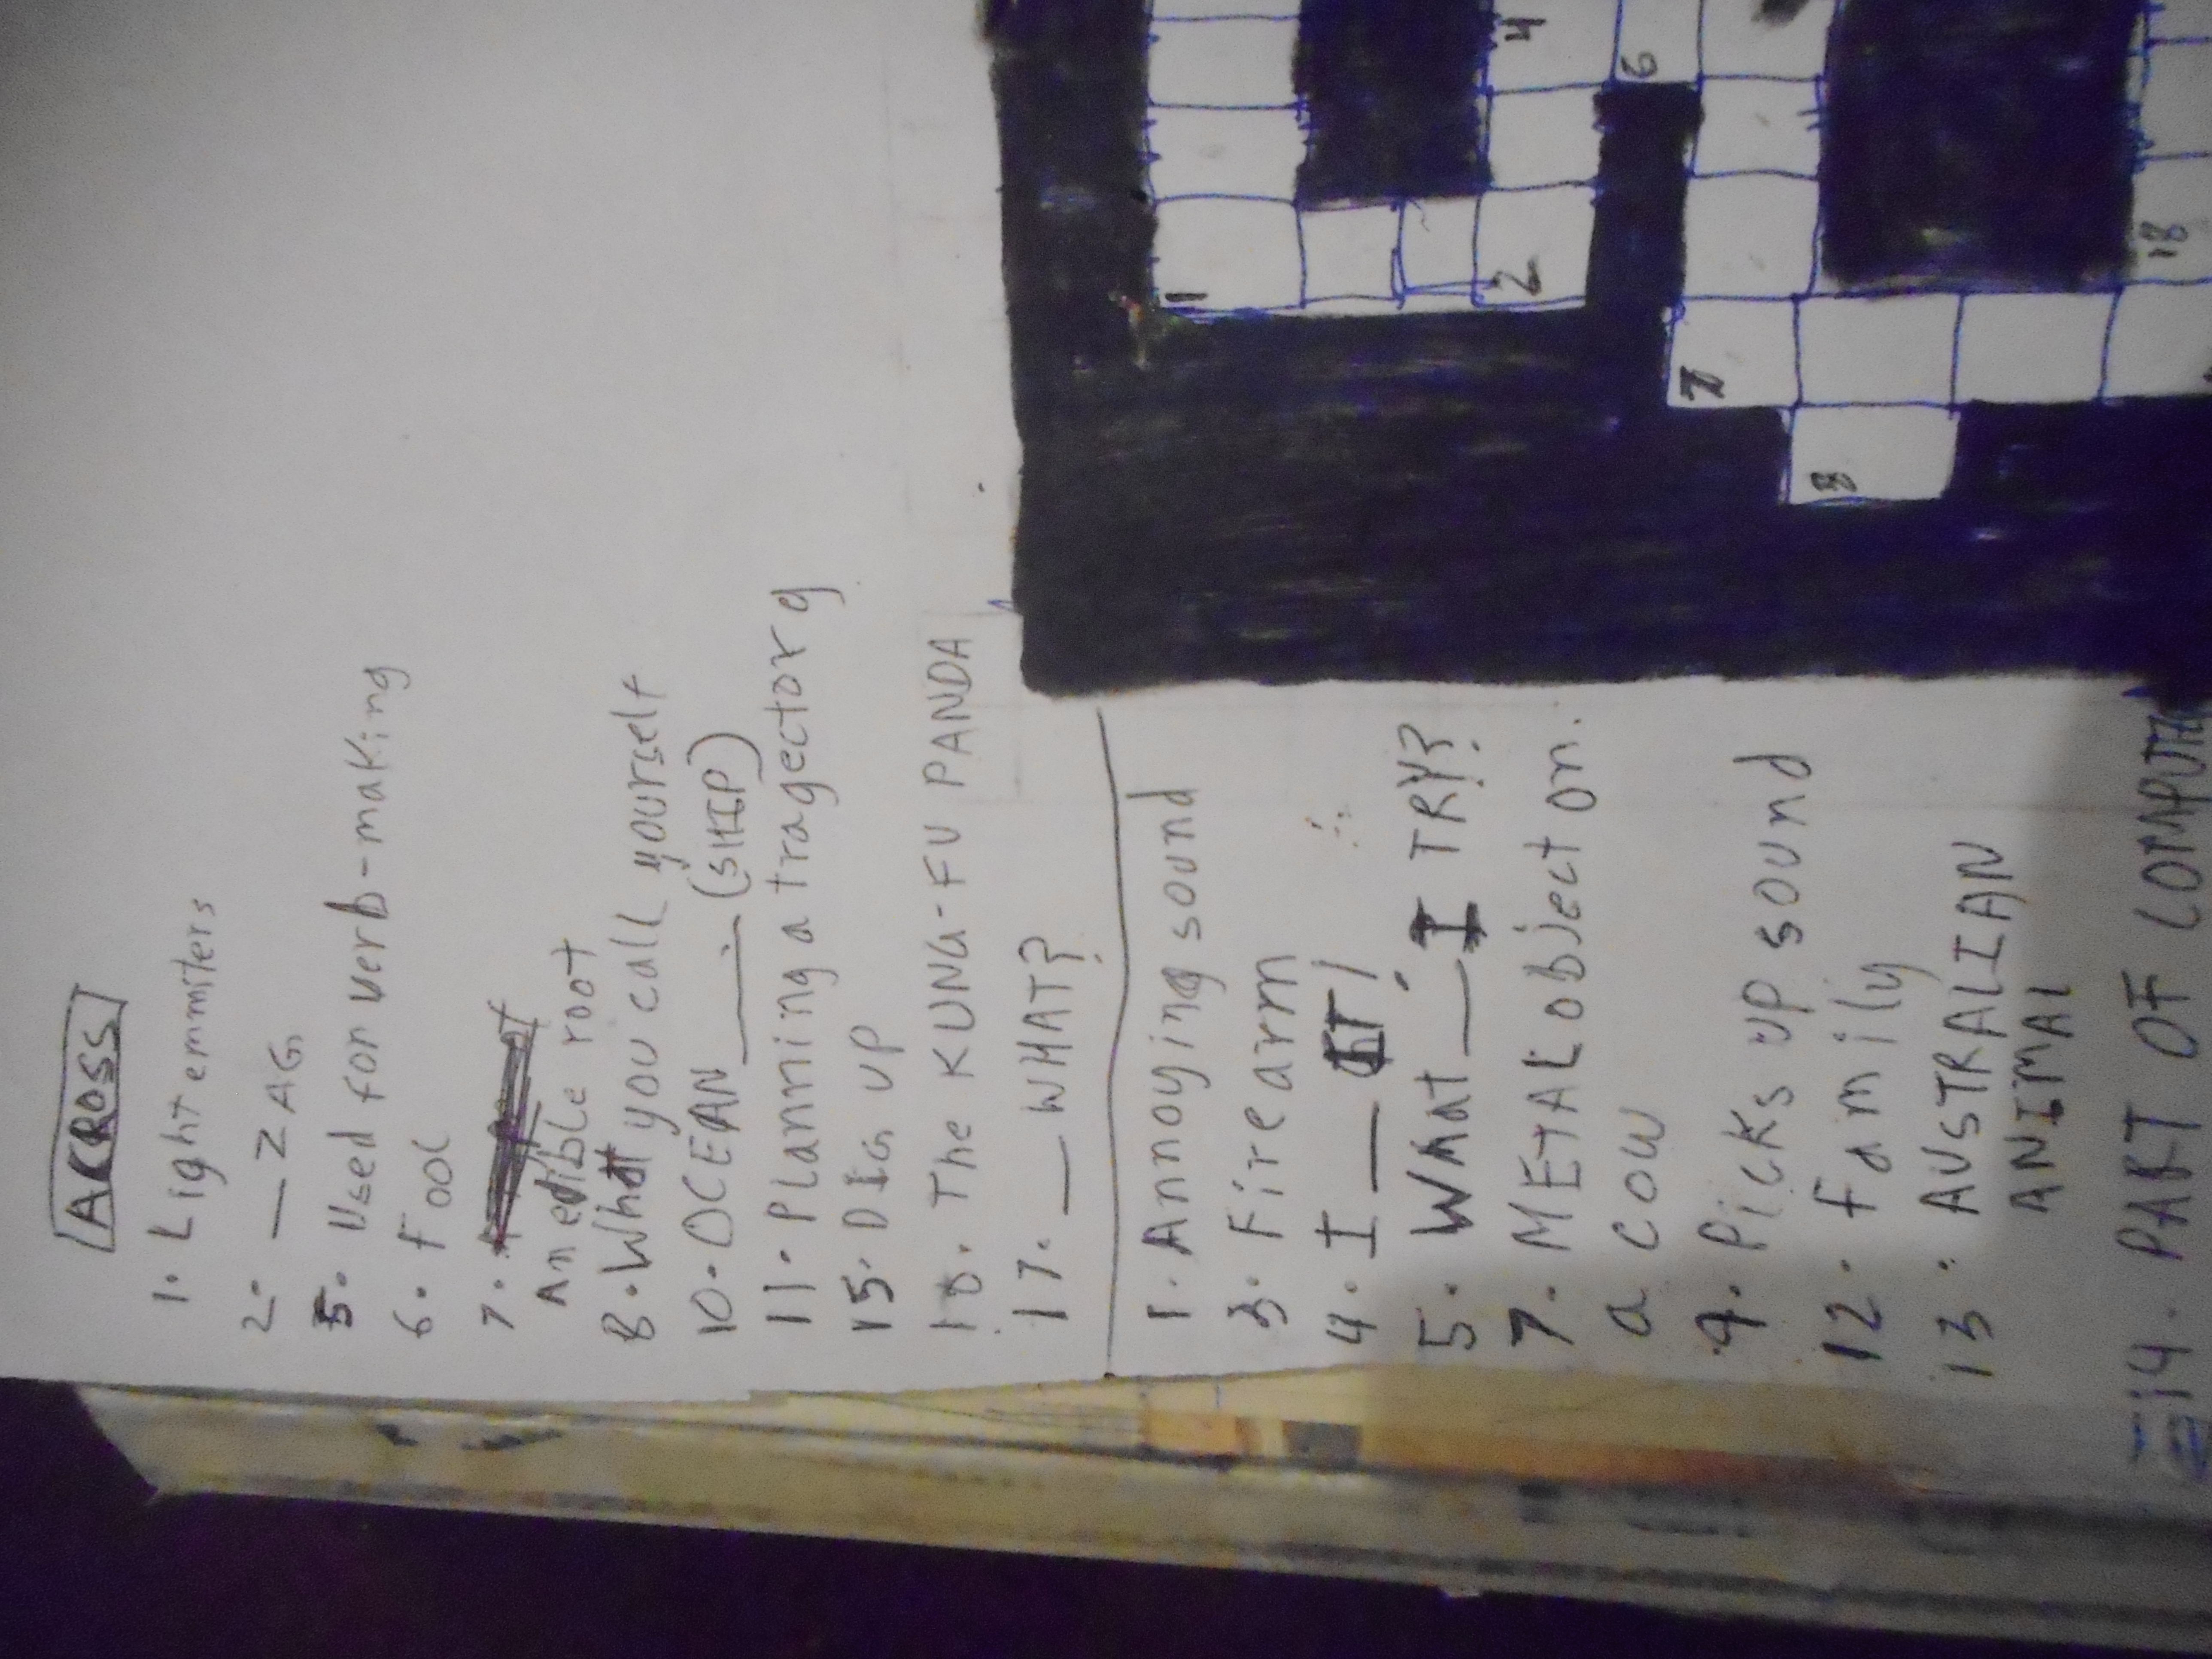 ACROSS
1. Light emmiters
2. _ ZAG
5. Used for verb-making
6. Fool
7.
An edible root
8. What you call yourself
10. OCEAN ___ (SHIP)
11. Planning a tragectory
15. DIG UP
16. The KUNG-FU PANDA
17. _ WHAT?
1. Annoying sound
3. Firearm
4. I _ IT!
5. What _ I TRY?
7. METAL object on
a cow
9. Picks up sound
12. family
13. AUSTRALIAN
ANIMAL
14. PART OF
1
4
2
6
7
8
18